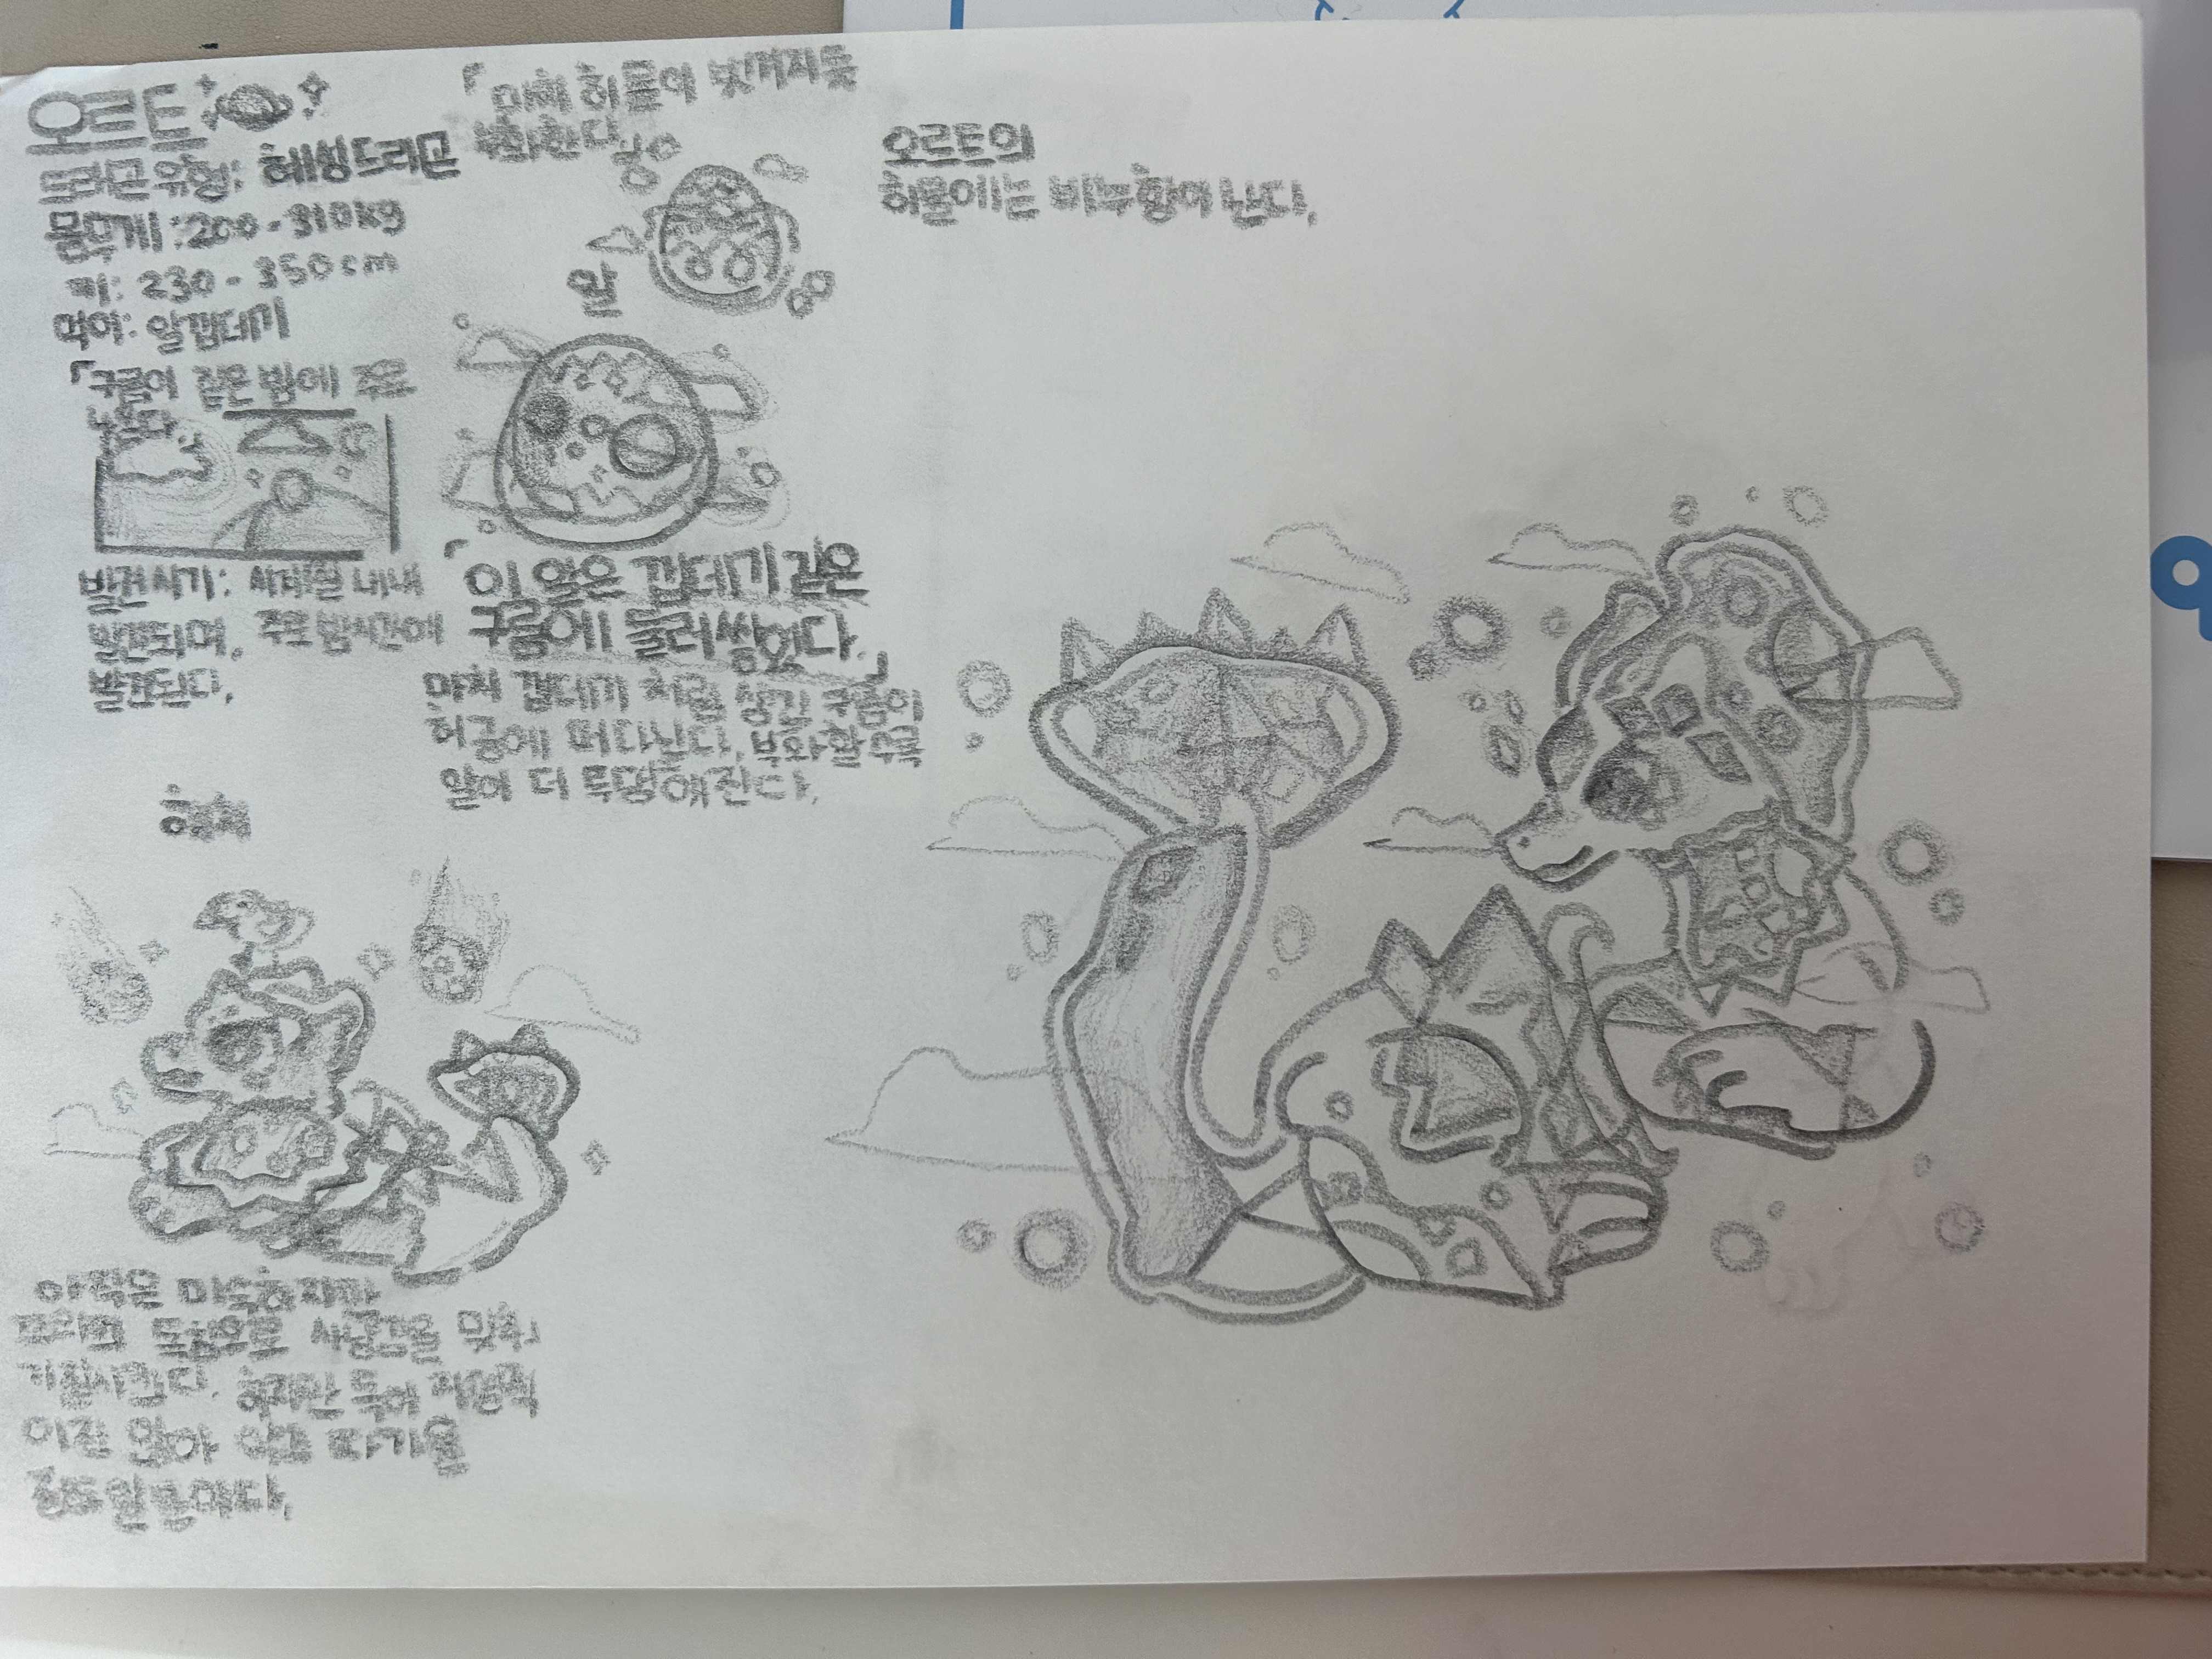 오르트
드래곤 유형: 혜성드래곤
몸무게: 200-310kg
키: 230-350cm
먹이: 알껍데기
「구름이 짙은 밤에 주로
발견시기: 사계절 내내
발견되며, 주로 밤시간에
발견된다.
「마치 허물이 벗겨지듯
부화한다
알
「이 알은 껍데기 같은
구름에 둘러쌓였다.」
마치 껍데기 처럼 생긴 구름이
허공에 떠다닌다. 부화할수록
알이 더 투명해진다.
오르트의
허물에는 비누향이 난다.
해츨
아직은 미숙하지만
꼬리의 독침으로 사냥감을 맞춰
기절시킨다. 하지만 독이 치명적
이진 않아